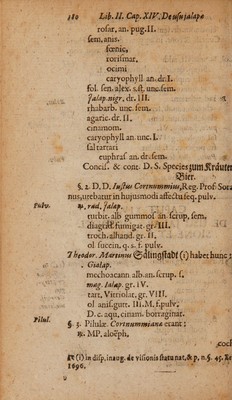 180 Lib. II. Cap. XIV. De usu jalapæ
rosar. an. pug. II.
sem. anis.
fœnic.
rorismar.
ocimi
caryophyll an. dr. I.
fol. sen. alex. s. st. unc. sem.
Jalap. nigr. dr. III.
rhabarb. unc. sem.
agaric. dr. II.
cinamom.
caryophyll an. unc. I.
sal tartari
euphras an. dr. sem.
Concis. & cont. D. S. Species zum Kräuter
Bier.
§. 2. D. D. Justus Cortnummius, Reg. Prof. Sora
nus, utebatur in hujusmodi affectu seq. pulv.
Pulv. ℞. rad. Jalap.
turbit. alb gummos an. scrup. sem.
diagrid. fumigat. gr. III.
troch. alhand. gr. II.
ol succin. q. s. f. pulv.
Theodor. Martinus Sälingstadt (i) habet hunc:
Gialap.
mechoacann alb. an. scrup. s.
mag. Jalap. gr. IV.
tart. Vitriolat. gr. VIII.
ol anis. gutt. III. M. f. pulv.
D. c. aqu, cinam. borraginat.
Pilul. §. 3. Pilulæ Cortnummianæ erant;
℞ MP. aloëph,
coch
(i) in disp. inaug. de visionis statu nat. & p. n. §. 45.
1696.